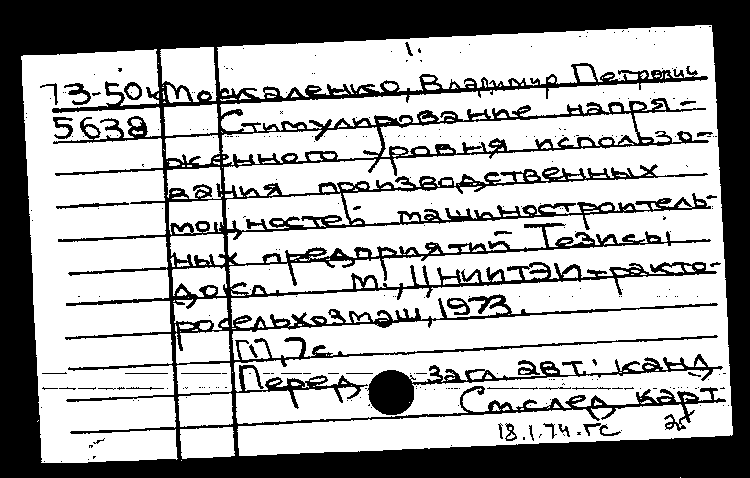 1.
73-50к Москаленко, Владимир Петрович
5638 Стимулирование напря-
женного уровня использо-
вания производственных
мощностей машиностроитель-
ных предприятий. Тезисы
докл. М., ЦНИИТЭИтракто-
росельхозмаш, 1973.
III, 7с.
Перед загл. авт.: канд
См.след карт.
18.1.74.ГС